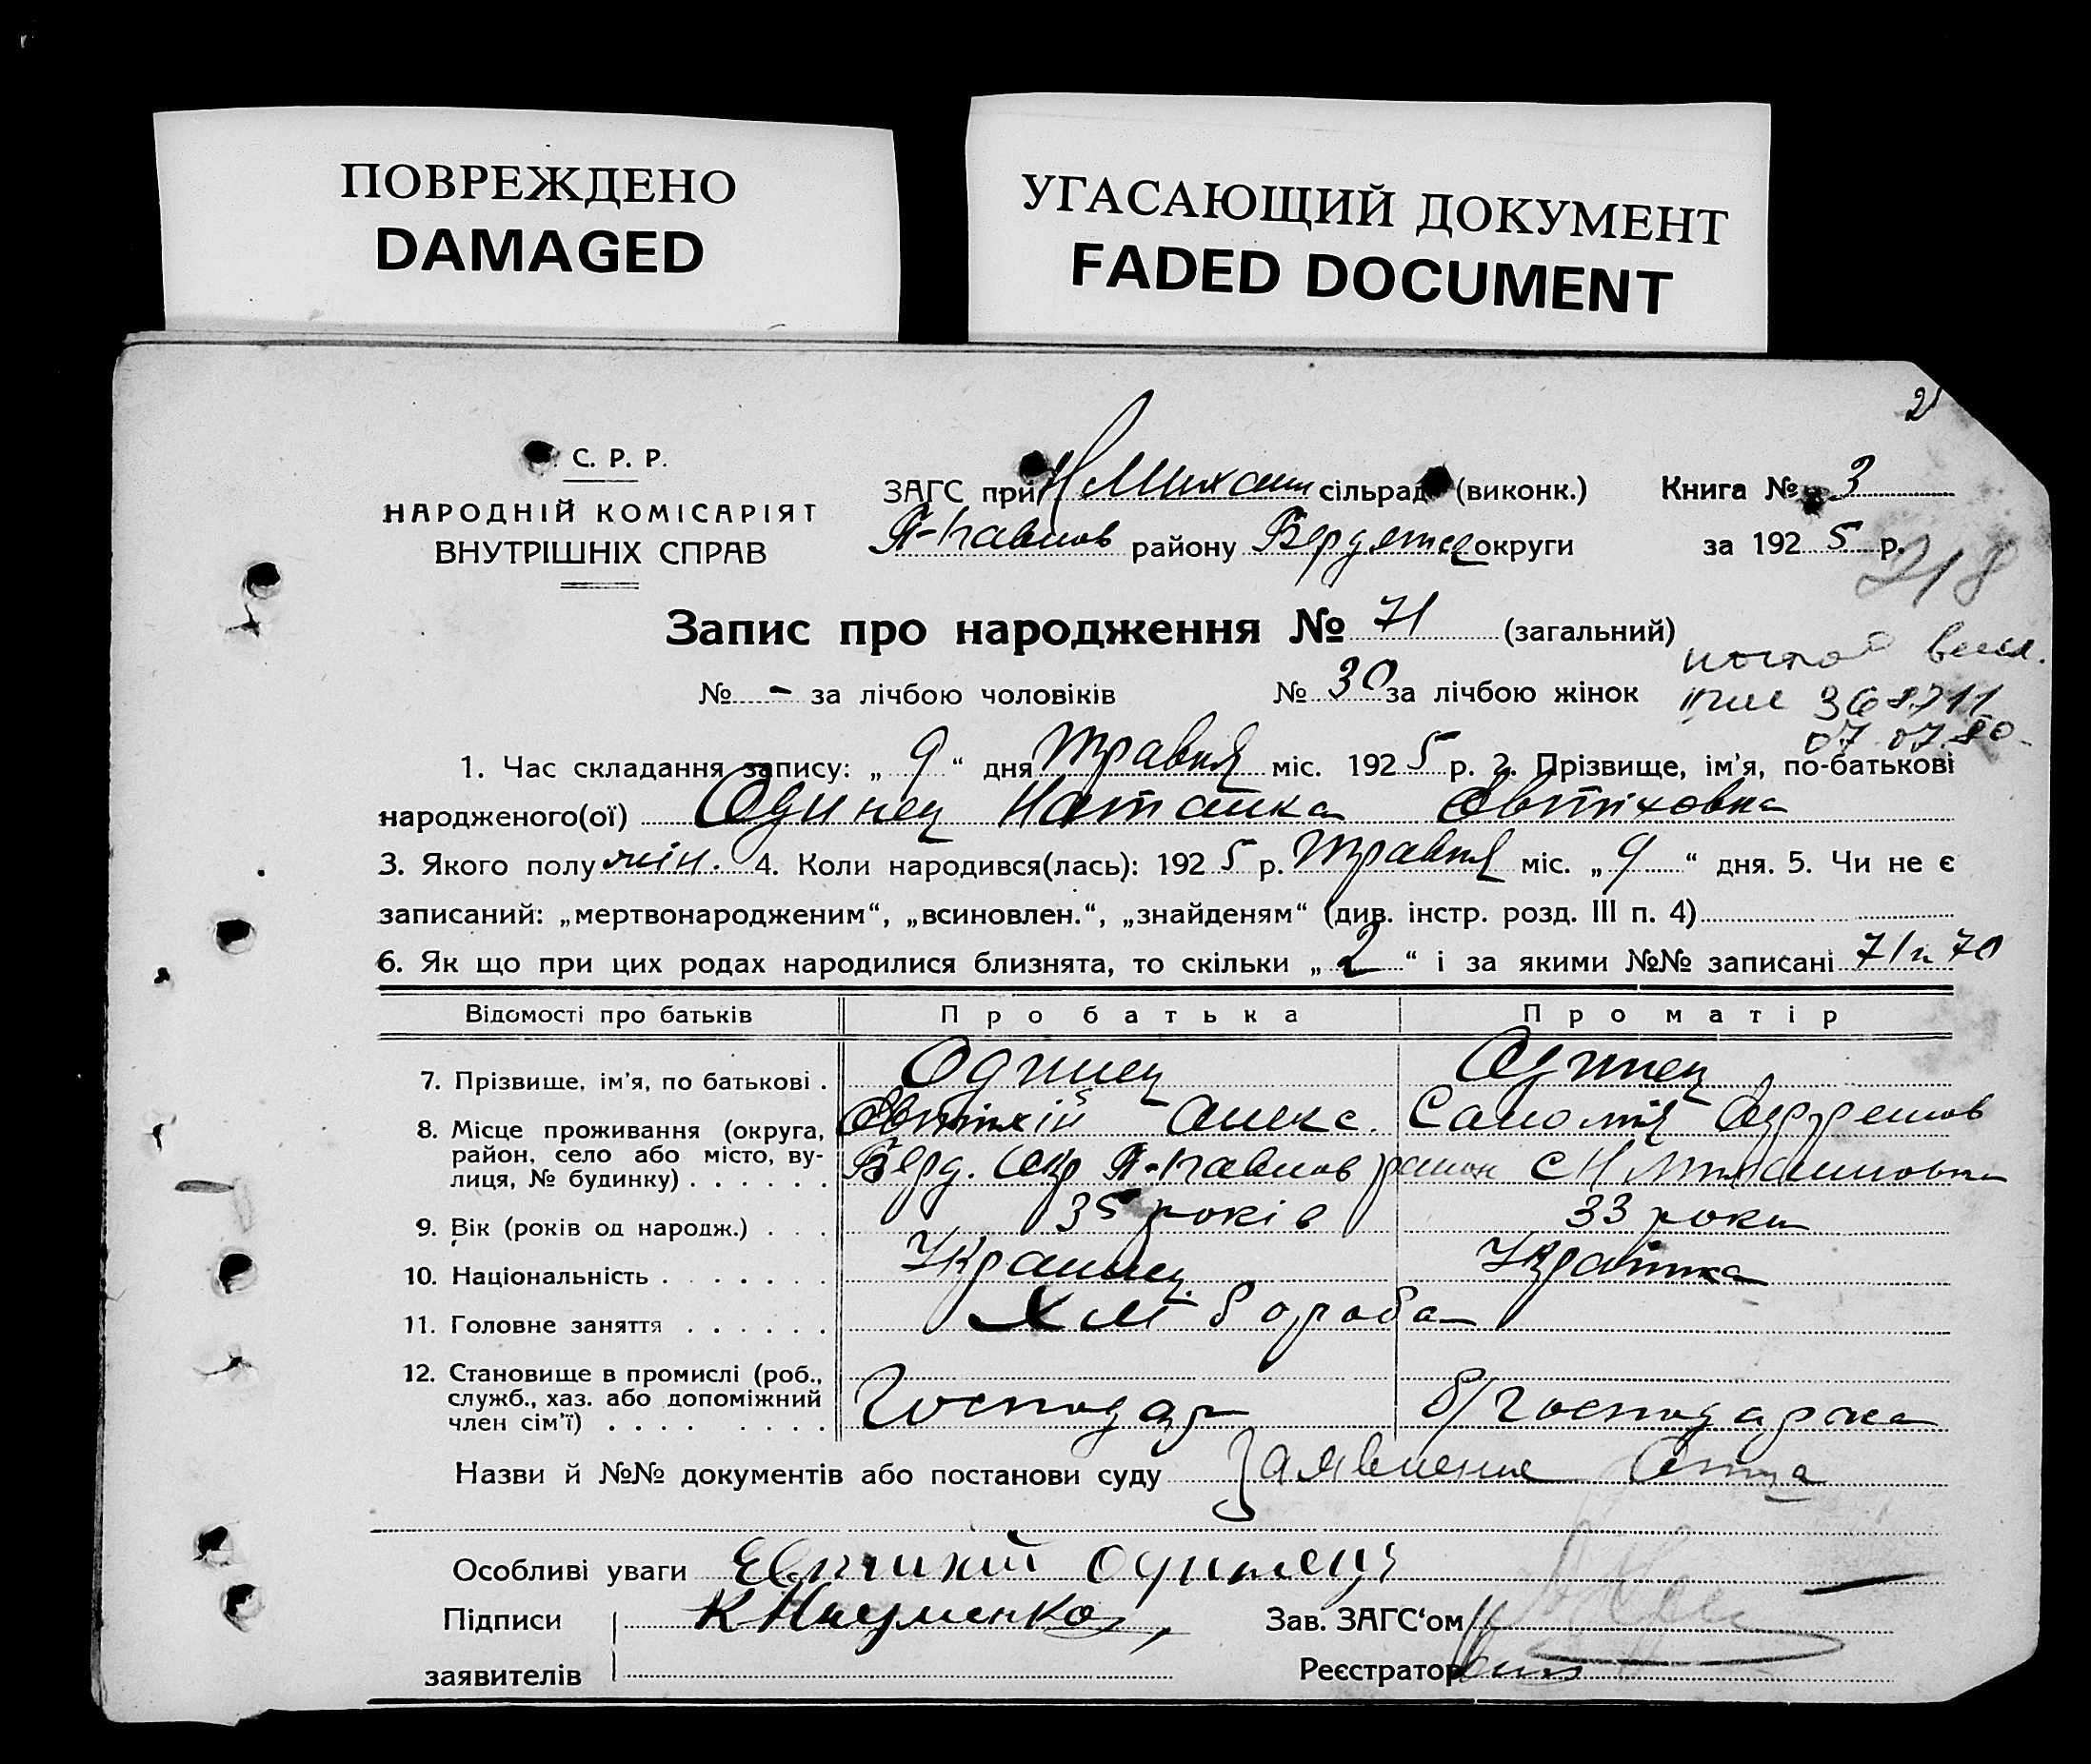 ПОВРЕЖДЕНО
DAMAGED
УГАСАЮЩИЙ ДОКУМЕНТ
FADED DOCUMENT
2
С. Р. Р.
НАРОДНІЙ КОМІСАРІЯТ
ВНУТРІШНІХ СПРАВ
ЗАГС при Н Михайл сільрад (виконк.) Книга № 3
П-Павлов району Бердянсц округи за 1925 р.
218
Запис про народження № 71 (загальний)
№ - за лічбою чоловіків № 30 за лічбою жінок
368711
07.07.80
1. Час складання запису: „ 9 “ дня травня міс. 1925 р. 2. Прізвище, ім’я, по-батькові
народженого(ої) Одинец Наталка Овтіховна
3. Якого полу жін. 4. Коли народився(лась): 1925 р. травня міс. „ 9 “ дня. 5. Чи не є
записаний: „мертвонародженим“, „всиновлен.“, „знайденям“ (див. інстр. розд. III п. 4)
6. Як що при цих родах народилися близнята, то скільки „ 2 “ і за якими №№ записані 71 и 70
Відомості про батьків Про батька Про матір
7. Прізвище, ім’я, по батькові . Одинец Одинец
Овтіхій Алекс. Саломія
8. Місце проживання (округа, район, село або місто, вулиця, № будинку) . . . . . . Берд. Окр П-Павлов район с Н Михайловка
9. Вік (років од народж.) . . . 35 років 33 роки
10. Національність . . . . . . . Украинец Українка
11. Головне заняття . . . . . . Хліборобa
12. Становище в промислі (роб., служб., хаз. або допоміжний член сім’ї) . . . . . . . . Господар д/господарка
Назви й №№ документів або постанови суду Заявление Отца
Особливі уваги Евтихий Одинець
Підписи К Науменко Зав. ЗАГС‘ом
заявителів Реєстратор